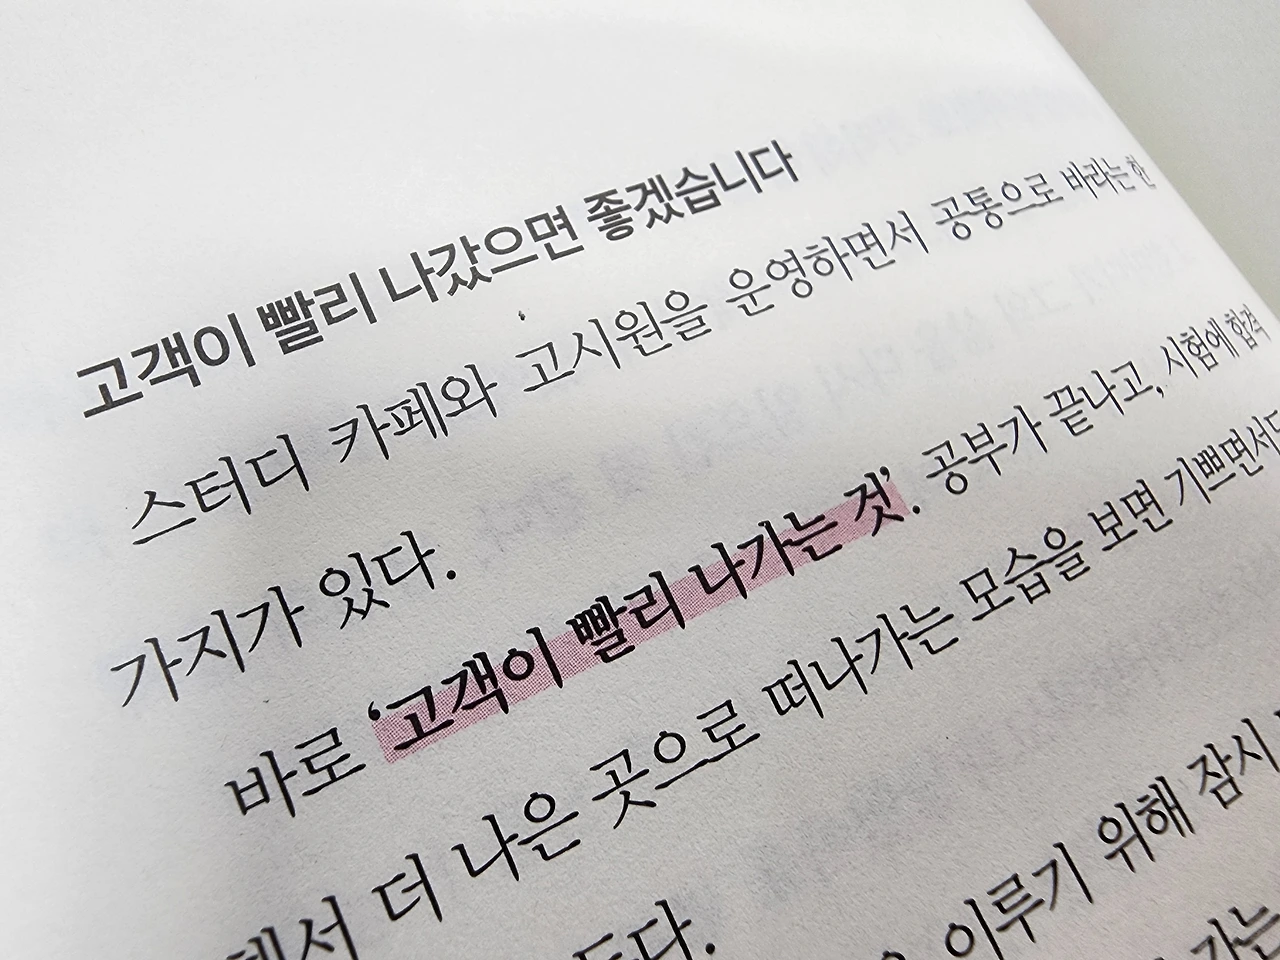 고객이 빨리 나갔으면 좋겠습니다
스터디 카페와 고시원을 운영하면서 공통으로 바라는 한
가지가 있다.
바로 ‘고객이 빨리 나가는 것’. 공부가 끝나고, 시험에 합격
더 나은 곳으로 떠나가는 모습을 보면 기쁘면서도
이루기 위해 잠시